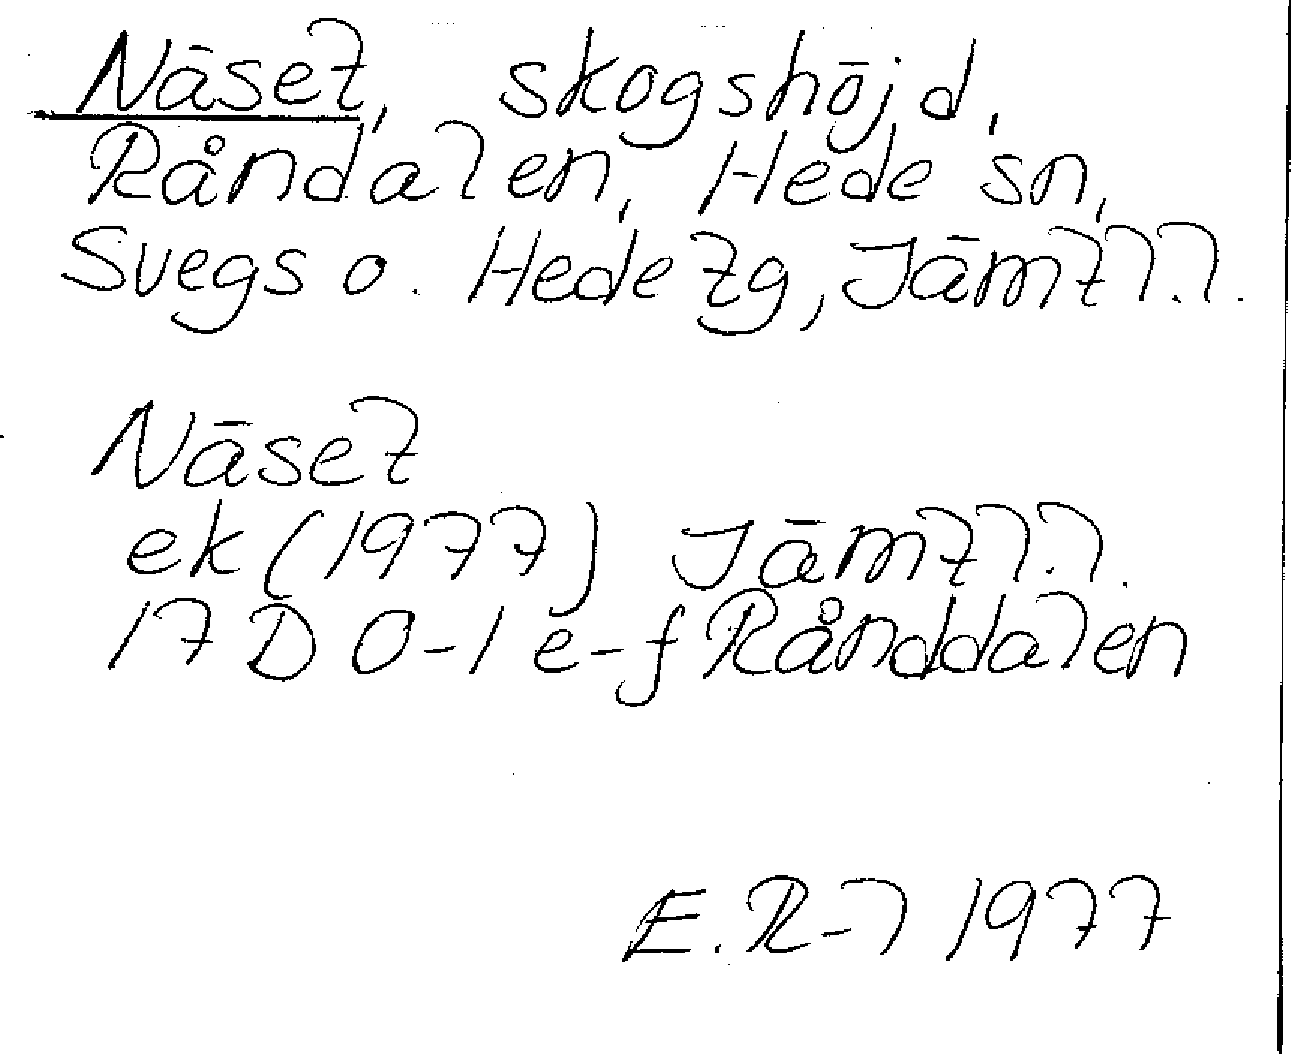 Näset, skogshöjd,
Råndalen, Hede sn,
Svegs o. Hede tg, Jämtl.l.
Näset
ek (1977) Jämtl.l.
17 D 0-1 e-f Rånddalen
E.R-l 1977